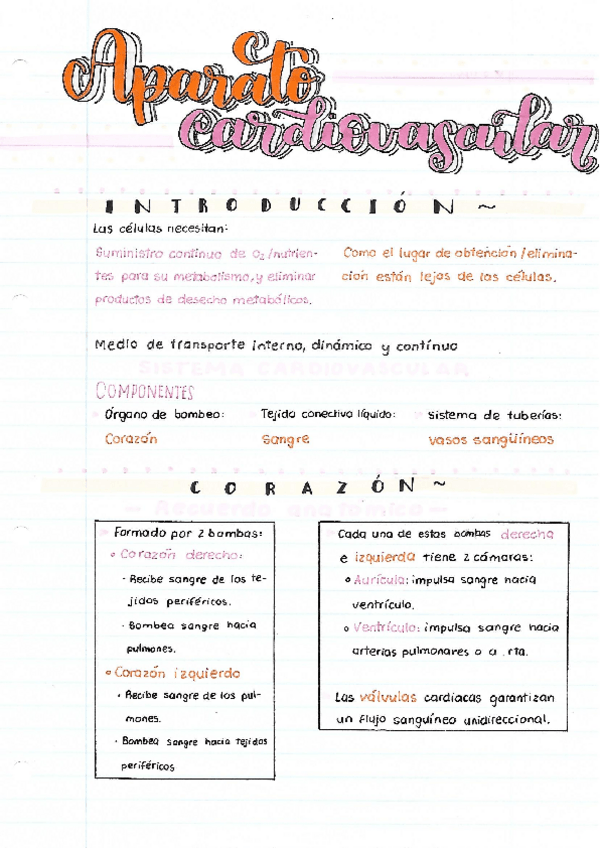 Aparato
cardiovascular
INTRODUCCIÓN ~
Las células necesitan:
Suministro continuo de O₂/nutrien-
tes para su metabolismo, y eliminar
productos de desecho metabólicos.
Como el lugar de obtención/elimina-
ción están lejos de las células.
Medio de transporte interno, dinámico y continuo
SISTEMA CARDIOVASCULAR
COMPONENTES
Órgano de bombeo:
Corazón
Tejido conectivo líquido:
Sangre
Sistema de tuberías:
vasos sangüíneos
CORAZÓN ~
— Recuerdo anatómico —
Formado por 2 bombas:
Corazón derecho:
· Recibe sangre de los te-
jidos periféricos.
· Bombea sangre hacia
pulmones.
Corazón izquierdo
· Recibe sangre de los pul-
mones.
· Bombea sangre hacia tejidos
periféricos
Cada una de estas bombas derecha
e izquierda tiene 2 cámaras:
Aurícula: impulsa sangre hacia
ventrículo.
Ventrículo: impulsa sangre hacia
arterias pulmonares o a
Las válvulas cardíacas garantizan
un flujo sanguíneo unidireccional.